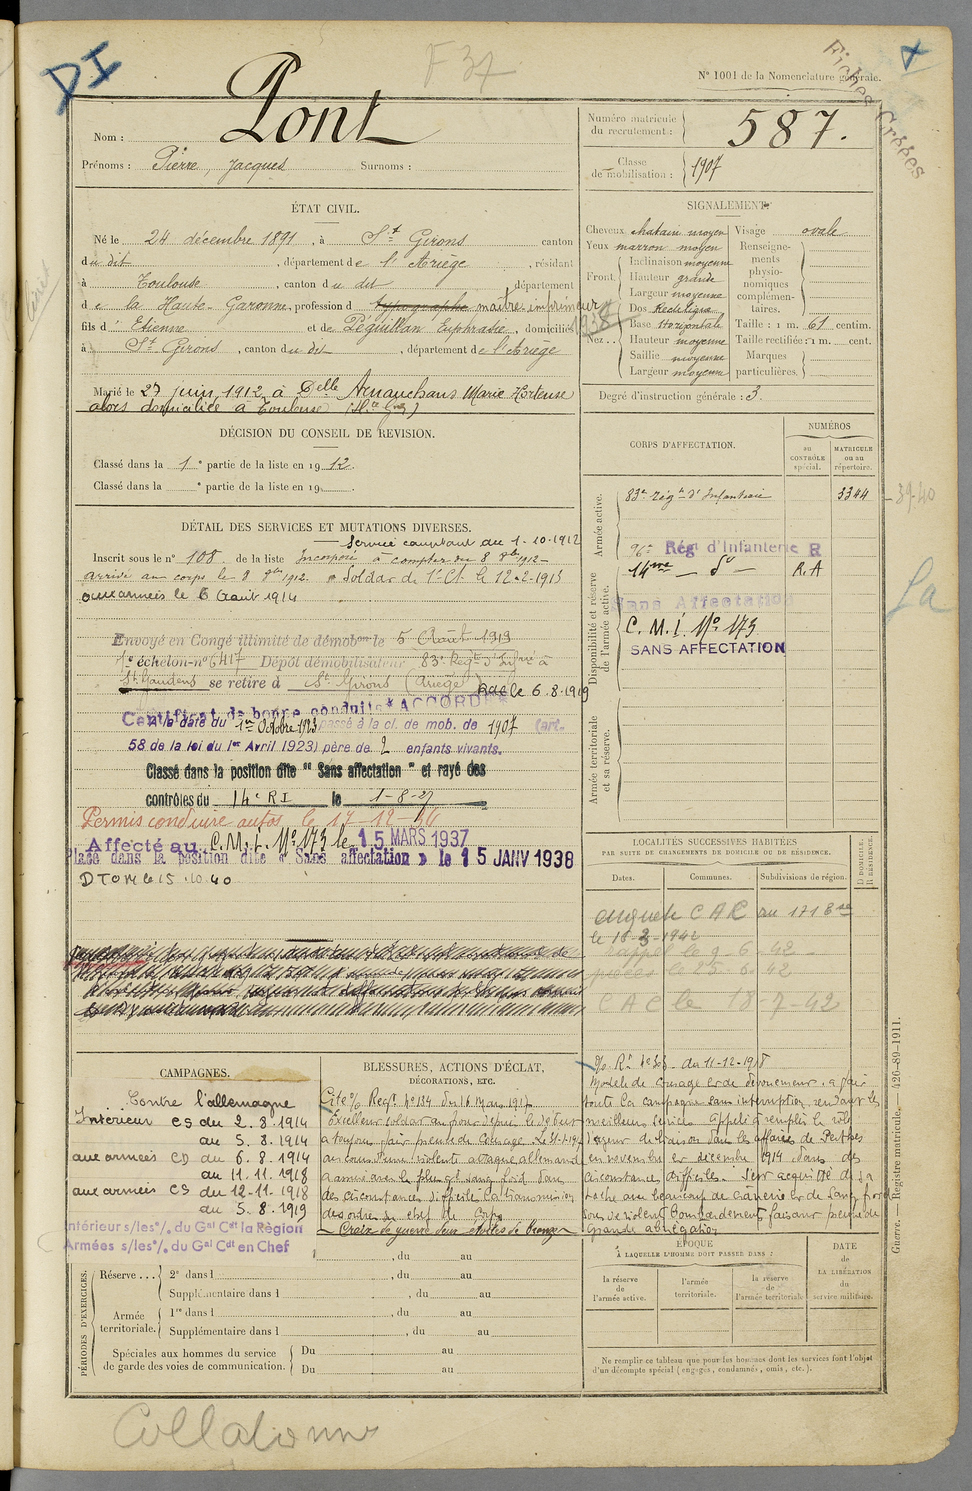 DI
F 37
N° 1001 de la Nomenclature générale.
Fiches Créées
Nom : Pont
Prénoms : Pierre, Jacques Surnoms :
Numéro matricule du recrutement : 587.
Classe de mobilisation : 1907
ÉTAT CIVIL.
Né le 24 décembre 1891, à St Girons canton
du dit, département de l'Ariège, résidant
à Toulouse, canton du dit département
de la Haute-Garonne, profession de typographe maître imprimeur
1938
fils d' Etienne et de Péguillan Euphrasie, domicilié
à St Girons, canton du dit, département de l'Ariège
Marié le 27 juin 1912 à Delle Arnauchans Marie Hortense
alors domiciliée à Toulouse (Hte Gne)
SIGNALEMENT.
Cheveux chatain moyen
Yeux marron moyen
Front Inclinaison moyenne
Hauteur grande
Largeur moyenne
Nez Dos Rectiligne
Base Horizontale
Hauteur moyenne
Saillie moyenne
Largeur moyenne
Visage ovale
Renseignements physionomiques complémentaires.
Taille : 1 m. 61 centim.
Taille rectifiée : 1 m. cent.
Marques particulières.
Degré d'instruction générale : 3.
DÉCISION DU CONSEIL DE REVISION.
Classé dans la 1e partie de la liste en 1912.
Classé dans la e partie de la liste en 19 .
CORPS D'AFFECTATION.
NUMÉROS
au CONTRÔLE spécial.
MATRICULE ou au répertoire.
Armée active.
83e Régt d'Infanterie 3344
39-40
Disponibilité et réserve de l'armée active.
96e Régt d'Infanterie R
14me — do — R.A
Sans Affectation
C. M. I. No 173
SANS AFFECTATION
La
Armée territoriale et sa réserve.
DÉTAIL DES SERVICES ET MUTATIONS DIVERSES.
Service comptant du 1-10-1912
Inscrit sous le n° 108 de la liste Incorporé à compter du 8 8bre 1912
arrivé au corps le 8 8bre 1912. Soldat de 1e Cl. le 12-2-1913
aux armées le 6 Août 1914
Envoyé en Congé illimité de démobon le 5 Août 1919
échelon-no 6417 Dépôt démobilisateur 83e Régt d'Infrie à
St Gaudens se retire à St Girons (Ariège) Rdc le 6.8.1919
Certificat de bonne conduite * ACCORDÉ *
A la date du 1er Octobre 1923 passé à la cl. de mob. de 1907 (art.
58 de la loi du 1er Avril 1923) père de 2 enfants vivants.
Classé dans la position dite " Sans affectation " et rayé des
contrôles du 14e RI le 1-8-27
Permis conduire autos le 17-12-
Affecté au C.M.I. No 173 le 15 MARS 1937
Placé dans la position dite « Sans affectation » le 15 JANV 1938
D T O M le 15.10.40
LOCALITÉS SUCCESSIVES HABITÉES
PAR SUITE DE CHANGEMENTS DE DOMICILE OU DE RÉSIDENCE.
Dates. Communes. Subdivisions de région.
D DOMICILE. R RÉSIDENCE.
enquete C A R au 171 Bre
le 18-3-1942
rappel le 9-6-42
le 25-6-42
C A C le 18-7-42
CAMPAGNES.
Contre l'allemagne
Intérieur CS du 2.8.1914
au 5.8.1914
aux armées CD du 6.8.1914
au 11.11.1918
aux armées CS du 12-11-1918
au 5.8.1919
Intérieur s/les o/. du Gal Cdt la Région
Armées s/les o/. du Gal Cdt en Chef
BLESSURES, ACTIONS D'ÉCLAT,
DÉCORATIONS, ETC.
Cité o/. Regt No 134 du 16 Mars 1917
Excellent soldat au front depuis le début
a toujours fait preuve de courage. Le
au cours d'une violente attaque allemande
a assuré avec le plus gd sang froid dans
des circonstances difficiles la transmission
des ordres du chef de Corps
Croix de guerre deux étoiles de bronze
o/. Rt No 303 du 11-12-1918
Modèle de courage et de dévouement. a fait
toute la campagne sans interruption, rendant les
meilleurs services. Appelé à remplir le rôle
d'agent de liaison dans les affaires de Perthes
en novembre et décembre 1914 dans des
circonstances difficiles. S'est acquitté de sa
tache avec beaucoup de crânerie et de sang froid
sous de violents bombardements faisant preuve de
grande abnégation
PÉRIODES D'EXERCICES.
, du au
Réserve... 2e dans l , du au
Supplémentaire dans l , du au
Armée territoriale. 1re dans l , du au
Supplémentaire dans l , du au
Spéciales aux hommes du service de garde des voies de communication. Du au
Du au
ÉPOQUE
À LAQUELLE L'HOMME DOIT PASSER DANS :
la réserve de l'armée active.
l'armée territoriale.
la réserve de l'armée territoriale
DATE de LA LIBÉRATION du service militaire.
Ne remplir ce tableau que pour les hommes dont les services font l'objet
d'un décompte spécial (engagés, condamnés, omis, etc.).
Guerre. — Registre matricule. — 426-89-1911.
Collationné